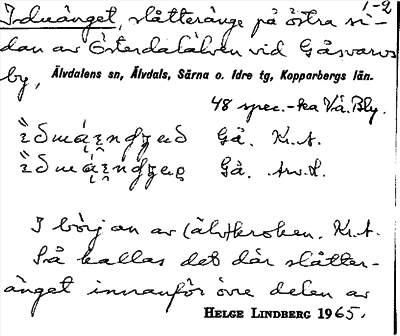 1-2
Iduänget, slåtteränge på östra si-
dan av Österdalälven vid Gåsvarvs
by, Älvdalens sn, Älvdals, Särna o. Idre tg, Kopparbergs län.
48 spec.-ka Vä. Bly.
Gå. Kr. A.
Gå.
I början av (älv)kroken. Kr. A.
Så kallas det där slåtter-
änget innanför övre delen av
HELGE LINDBERG 1965.